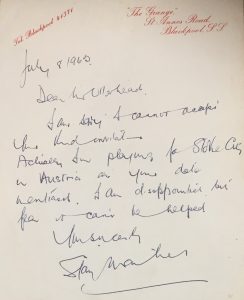 Tel. Blackpool 41371
"The Grange"
St Annes Road
Blackpool S.S
July 8 1963
Dear Mr
I am sorry I cannot accept
your kind invitation
Actually I'm playing for Stoke City
in Austria on your date
mentioned. I am disappointed but
fear it can't be helped
Yours sincerely
Stan Matthews